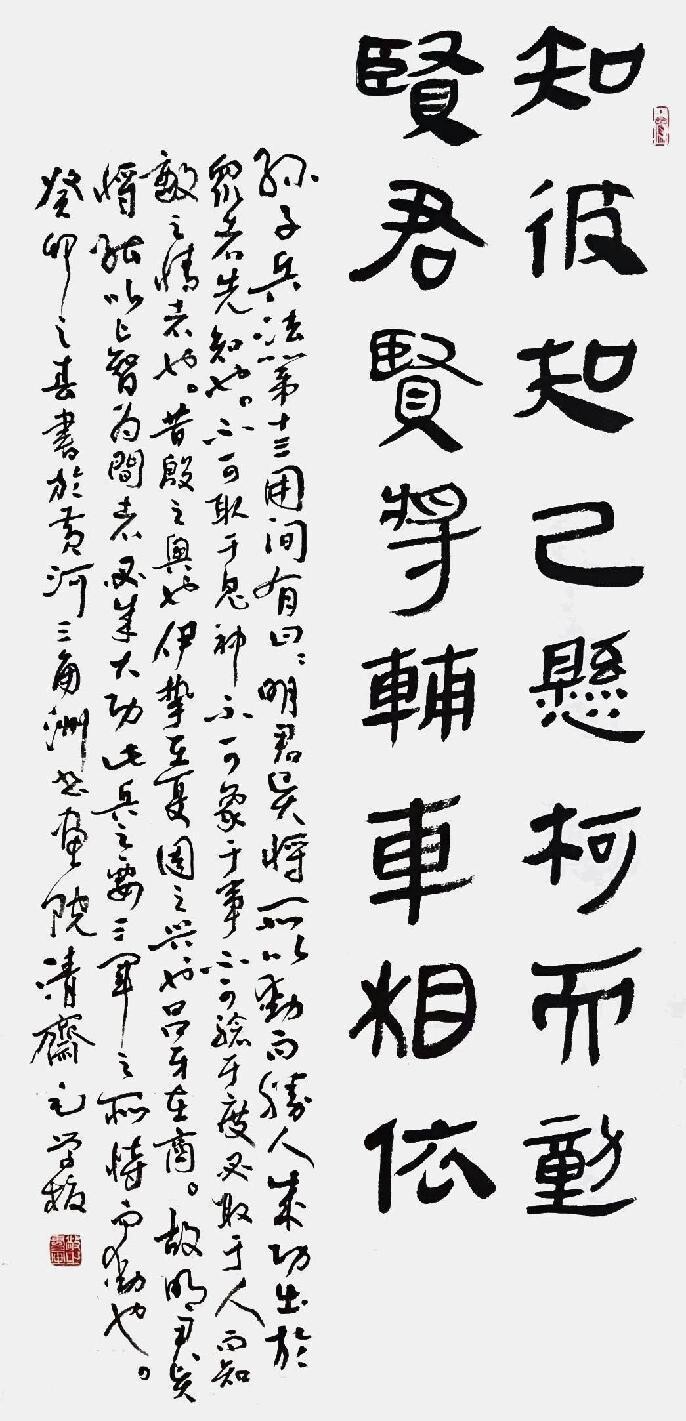 知彼知己懸柯而動
賢君賢將輔車相依
孫子兵法第十三用间有曰：明君贤將所以動而勝人成功出於
眾者先知也。不可取于鬼神不可象于事不可驗于度必取于人而知
敵之情者也。昔殷之興也伊摯在夏周之兴也吕牙在商。故明君贤
將能以上智为間者必成大功此兵之要三軍之所恃而動也。
癸卯之春書於黄河三角洲书畫院清齋